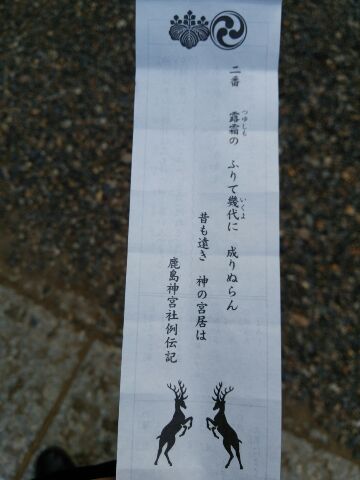 二番
露霜の ふりて幾代に 成りぬらん
つゆしも
いくよ
昔も遠き 神の宮居は
鹿島神宮社例伝記